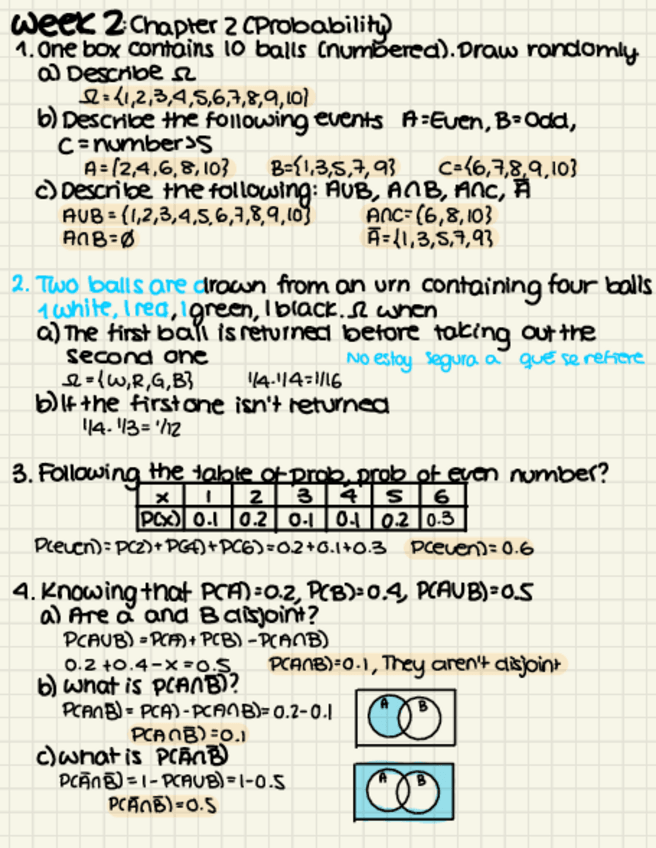 Week 2: Chapter 2 (Probability)
1. One box contains 10 balls (numbered). Draw randomly.
a) Describe Ω
Ω = {1,2,3,4,5,6,7,8,9,10}
b) Describe the following events A=Even, B=Odd,
C = number>5
A={2,4,6,8,10} B={1,3,5,7,9} C={6,7,8,9,10}
c) Describe the following: A∪B, A∩B, A∩C, A̅
A∪B = {1,2,3,4,5,6,7,8,9,10} A∩C={6,8,10}
A∩B=∅ A̅={1,3,5,7,9}
2. Two balls are drawn from an urn containing four balls
1 white, 1 red, 1 green, 1 black. Ω when
a) The first ball is returned before taking out the
second one No estoy segura a qué se refiere
Ω={W,R,G,B} 1/4·1/4=1/16
b) If the first one isn't returned
1/4·1/3=1/12
3. Following the table of prob, prob of even number?
x 1 2 3 4 5 6
P(x) 0.1 0.2 0.1 0.1 0.2 0.3
P(even)=P(2)+P(4)+P(6)=0.2+0.1+0.3 P(even)=0.6
4. Knowing that P(A)=0.2, P(B)=0.4, P(A∪B)=0.5
a) Are a and B disjoint?
P(A∪B) = P(A)+P(B)-P(A∩B)
0.2+0.4-x=0.5 P(A∩B)=0.1, They aren't disjoint
b) what is P(A∩B̅)?
P(A∩B̅)= P(A)-P(A∩B)=0.2-0.1
P(A∩B̅)=0.1
A B
c) what is P(A̅∩B̅)
P(A̅∩B̅)=1-P(A∪B)=1-0.5
P(A̅∩B̅)=0.5
A B